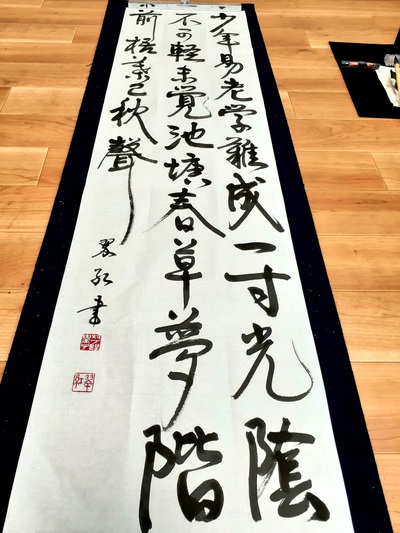 少年易老学難成一寸光陰
不可軽未覚池塘春草夢階
前梧葉已秋聲
翠紅書